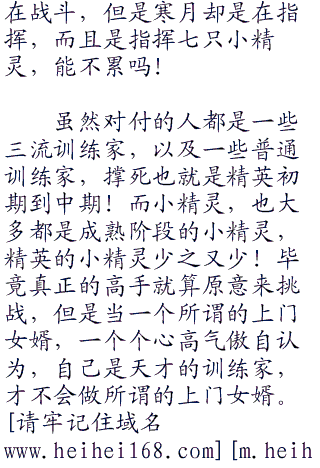 在战斗，但是寒月却是在指
挥，而且是指挥七只小精
灵，能不累吗！
虽然对付的人都是一些
三流训练家，以及一些普通
训练家，撑死也就是精英初
期到中期！而小精灵，也大
多都是成熟阶段的小精灵，
精英的小精灵少之又少！毕
竟真正的高手就算原意来挑
战，但是当一个所谓的上门
女婿，一个个心高气傲自认
为，自己是天才的训练家，
才不会做所谓的上门女婿。
[请牢记住域名
www.heihei168.com][m.heih